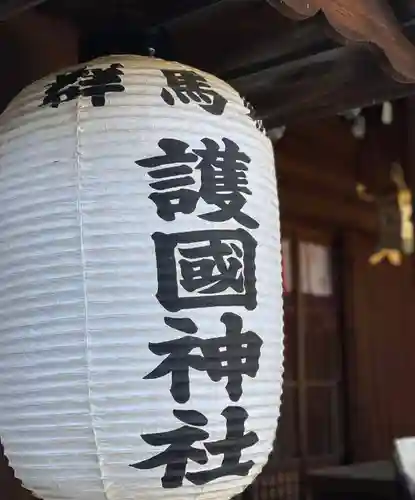 群馬
護國神社